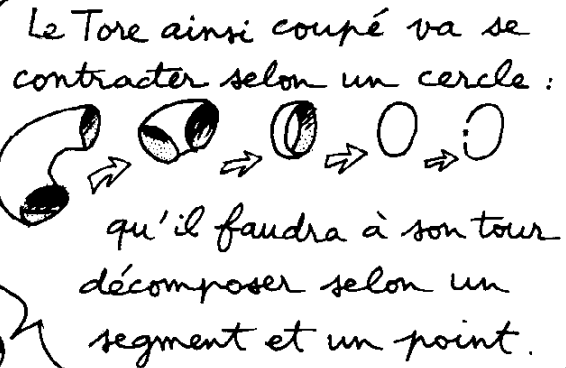 Le Tore ainsi coupé va se
contracter selon un cercle :
qu'il faudra à son tour
décomposer selon un
segment et un point.